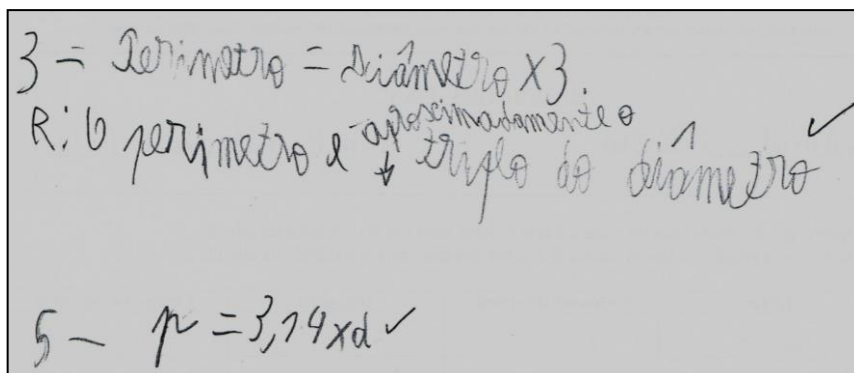 3 = Perimetro = diâmetro x 3.
R: O perimetro e aproximadamente o triplo do diâmetro ✓
5 - p = 3,14 x d ✓